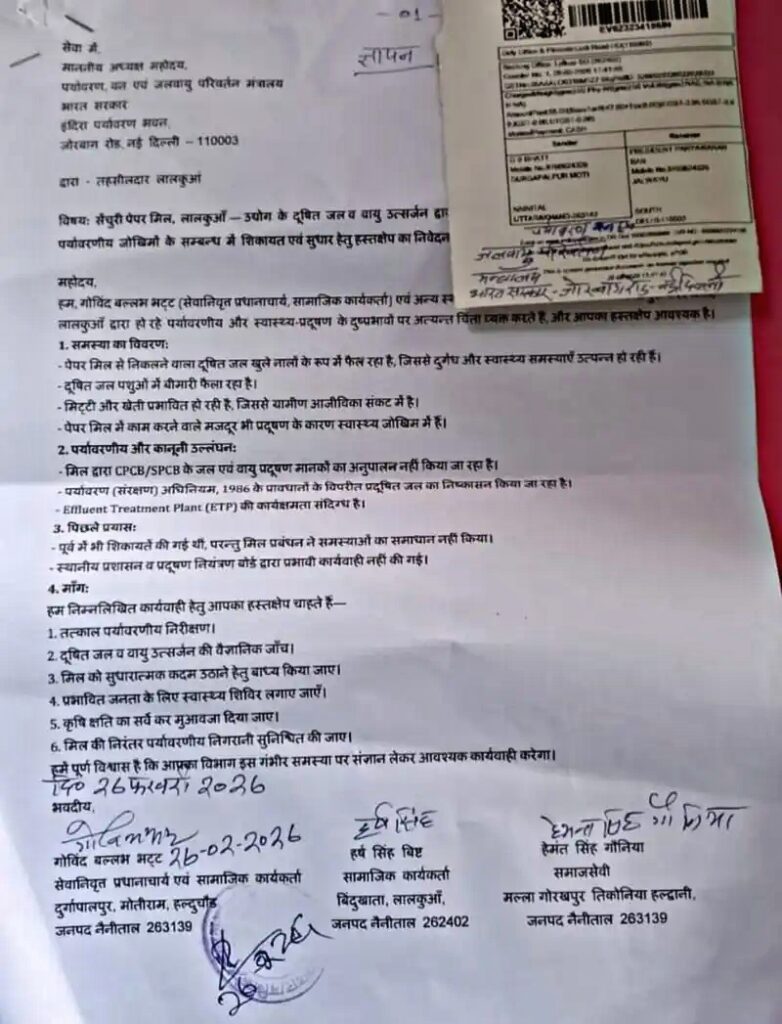 - 01 -
ज्ञापन
सेवा में,
माननीय अध्यक्ष महोदय,
पर्यावरण, वन एवं जलवायु परिवर्तन मंत्रालय
भारत सरकार
इंदिरा पर्यावरण भवन,
जोरबाग रोड, नई दिल्ली – 110003
द्वारा - तहसीलदार लालकुआं
विषय: सेंचुरी पेपर मिल, लालकुआँ — उद्योग के दूषित जल व वायु उत्सर्जन द्वा
पर्यावरणीय जोखिमों के सम्बन्ध में शिकायत एवं सुधार हेतु हस्तक्षेप का निवेदन
महोदय,
हम, गोविंद बल्लभ भट्ट (सेवानिवृत प्रधानाचार्य, सामाजिक कार्यकर्ता) एवं अन्य स्
लालकुआँ द्वारा हो रहे पर्यावरणीय और स्वास्थ्य-प्रदूषण के दुष्प्रभावों पर अत्यन्त चिंता व्यक्त करते हैं, और आपका हस्तक्षेप आवश्यक है।
1. समस्या का विवरण:
- पेपर मिल से निकलने वाला दूषित जल खुले नालों के रूप में फैल रहा है, जिससे दुर्गंध और स्वास्थ्य समस्याएँ उत्पन्न हो रही हैं।
- दूषित जल पशुओं में बीमारी फैला रहा है।
- मिट्टी और खेती प्रभावित हो रही है, जिससे ग्रामीण आजीविका संकट में है।
- पेपर मिल में काम करने वाले मजदूर भी प्रदूषण के कारण स्वास्थ्य जोखिम में हैं।
2. पर्यावरणीय और कानूनी उल्लंघन:
- मिल द्वारा CPCB/SPCB के जल एवं वायु प्रदूषण मानकों का अनुपालन नहीं किया जा रहा है।
- पर्यावरण (संरक्षण) अधिनियम, 1986 के प्रावधानों के विपरीत प्रदूषित जल का निष्कासन किया जा रहा है।
- Effluent Treatment Plant (ETP) की कार्यक्षमता संदिग्ध है।
3. पिछले प्रयास:
- पूर्व में भी शिकायतें की गई थीं, परन्तु मिल प्रबंधन ने समस्याओं का समाधान नहीं किया।
- स्थानीय प्रशासन व प्रदूषण नियंत्रण बोर्ड द्वारा प्रभावी कार्यवाही नहीं की गई।
4. माँग:
हम निम्नलिखित कार्यवाही हेतु आपका हस्तक्षेप चाहते हैं—
1. तत्काल पर्यावरणीय निरीक्षण।
2. दूषित जल व वायु उत्सर्जन की वैज्ञानिक जाँच।
3. मिल को सुधारात्मक कदम उठाने हेतु बाध्य किया जाए।
4. प्रभावित जनता के लिए स्वास्थ्य शिविर लगाए जाएँ।
5. कृषि क्षति का सर्वे कर मुआवजा दिया जाए।
6. मिल की निरंतर पर्यावरणीय निगरानी सुनिश्चित की जाए।
हमें पूर्ण विश्वास है कि आपका विभाग इस गंभीर समस्या पर संज्ञान लेकर आवश्यक कार्यवाही करेगा।
दि0 26 फरवरी 2026
भवदीय,
गोविंद बल्लभ भट्ट 26-02-2026
सेवानिवृत प्रधानाचार्य एवं सामाजिक कार्यकर्ता
दुर्गापालपुर, मोतीराम, हल्दुचौड़
जनपद नैनीताल 263139
हर्ष सिंह
हर्ष सिंह बिष्ट
सामाजिक कार्यकर्ता
बिंदुखाता, लालकुआँ,
जनपद नैनीताल 262402
हेमन्त सिंह गौनिया
हेमंत सिंह गौनिया
समाजसेवी
मल्ला गोरखपुर तिकोनिया हल्द्वानी,
जनपद नैनीताल 263139
Sender
Receiver
DURGAPALPUR MOTI
NAINITAL
JALWAYU
SOUTH
पर्यावरण वन एवं
जलवायु परिवर्तन
मन्त्रालय
भारत सरकार - जोरबाग रोड - नई दिल्ली